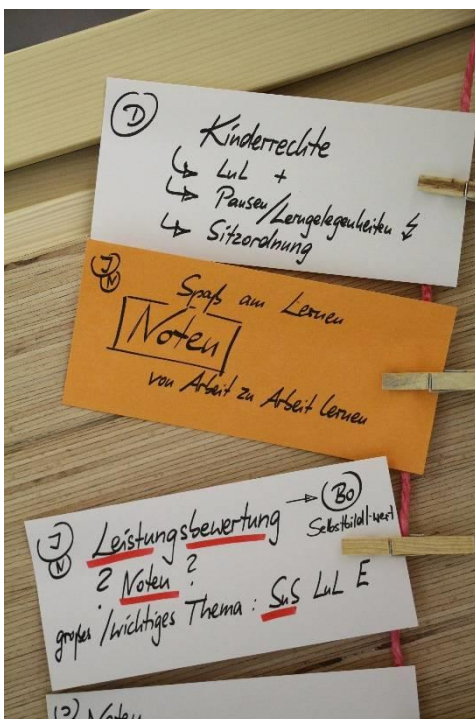 D
Kinderrechte
↳ LuL +
↳ Pausen/Lerngelegenheiten ↯
↳ Sitzordnung
J
N
Spaß am Lernen
Noten
von Arbeit zu Arbeit lernen
J
N
Leistungsbewertung → Bo
Selbstbild/-wert
? Noten ?
großes/wichtiges Thema: SuS LuL E
Noten